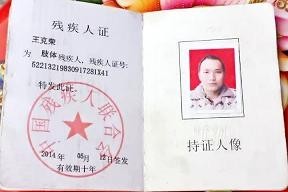 残疾人证
王克荣
为 肢体 残疾人，残疾人证号：
52213219830917281X41
特发此证。
中国残疾人联合会
2014年 05月 12日签发
有效期十年
持证人像